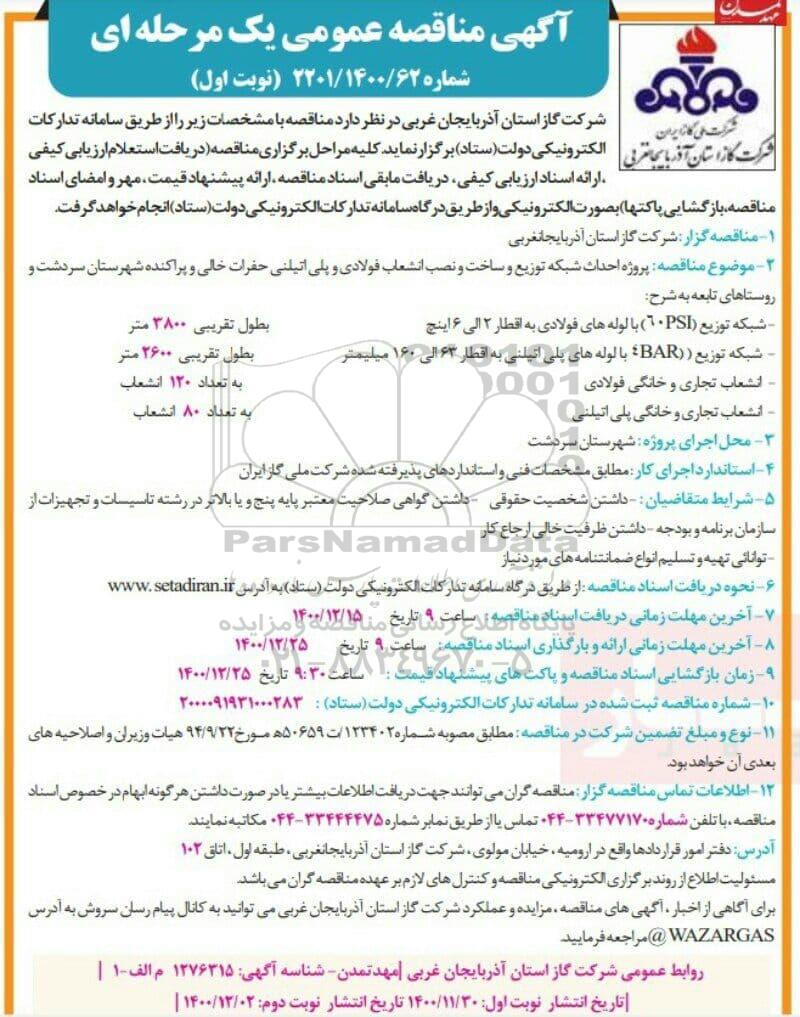 مهد تمدن
آگهی مناقصه عمومی یک مرحله ای
شماره ۲۲۰۱/۱۴۰۰/۶۲ (نوبت اول)
شرکت ملی گاز ایران
شرکت گاز استان آذربایجانغربی
شرکت گاز استان آذربایجان غربی در نظر دارد مناقصه با مشخصات زیر را از طریق سامانه تدارکات
الکترونیکی دولت(ستاد)برگزار نماید. کلیه مراحل برگزاری مناقصه (دریافت استعلام ارزیابی کیفی
،ارائه اسناد ارزیابی کیفی ، دریافت مابقی اسناد مناقصه ، ارائه پیشنهاد قیمت ، مهر و امضای اسناد
مناقصه، بازگشایی پاکتها) بصورت الکترونیکی و از طریق درگاه سامانه تدارکات الکترونیکی دولت (ستاد) انجام خواهد گرفت.
۱- مناقصه گزار: شرکت گاز استان آذربایجانغربی
۲- موضوع مناقصه: پروژه احداث شبکه توزیع و ساخت و نصب انشعاب فولادی و پلی اتیلنی حفرات خالی و پراکنده شهرستان سردشت و
روستاهای تابعه به شرح:
-شبکه توزیع (۶۰PSI) با لوله های فولادی به اقطار ۲ الی ۶ اینچ بطول تقریبی ۳۸۰۰ متر
- شبکه توزیع ( (۴BAR با لوله های پلی اتیلنی به اقطار ۶۳ الی ۱۶۰ میلیمتر بطول تقریبی ۲۶۰۰ متر
- انشعاب تجاری و خانگی فولادی به تعداد ۱۲۰ انشعاب
- انشعاب تجاری و خانگی پلی اتیلنی به تعداد ۸۰ انشعاب
۳- محل اجرای پروژه: شهرستان سردشت
۴-استاندارد اجرای کار: مطابق مشخصات فنی و استانداردهای پذیرفته شده شرکت ملی گاز ایران
۵- شرایط متقاضیان: -داشتن شخصیت حقوقی -داشتن گواهی صلاحیت معتبر پایه پنج و یا بالاتر در رشته تاسیسات و تجهیزات از
سازمان برنامه و بودجه -داشتن ظرفیت خالی ارجاع کار
-توانائی تهیه و تسلیم انواع ضمانتنامه های مورد نیاز
ParsNamadData
۶- نحوه دریافت اسناد مناقصه: از طریق درگاه سامانه تدارکات الکترونیکی دولت (ستاد) به آدرس www. setadiran.ir
۷- آخرین مهلت زمانی دریافت اسناد مناقصه: ساعت ۹ تاریخ ۱۴۰۰/۱۲/۱۵
پایگاه اطلاع رسانی مناقصه و مزایده
۸- آخرین مهلت زمانی ارائه و بارگذاری اسناد مناقصه: ساعت ۹ تاریخ ۱۴۰۰/۱۲/۲۵
۰۲۱-۸۸۳۴۹۶۷۰-۵
۹- زمان بازگشایی اسناد مناقصه و پاکت های پیشنهاد قیمت : ساعت ۹:۳۰ تاریخ ۱۴۰۰/۱۲/۲۵
۱۰- شماره مناقصه ثبت شده در سامانه تدارکات الکترونیکی دولت (ستاد) : ۲۰۰۰۰۹۱۹۳۱۰۰۰۲۸۳
۱۱- نوع و مبلغ تضمین شرکت در مناقصه : مطابق مصوبه شماره ۱۲۳۴۰۲/ت ۵۰۶۵۹ه مورخ ۹۴/۹/۲۲ هیات وزیران و اصلاحیه های
بعدی آن خواهد بود.
۱۲- اطلاعات تماس مناقصه گزار: مناقصه گران می توانند جهت دریافت اطلاعات بیشتر یا در صورت داشتن هرگونه ابهام در خصوص اسناد
مناقصه ، با تلفن شماره ۳۳۴۷۷۱۷۰-۰۴۴ تماس یا از طریق نمابر شماره ۳۳۴۴۴۴۷۵-۰۴۴ مکاتبه نمایند.
آدرس: دفتر امور قراردادها واقع در ارومیه ، خیابان مولوی ، شرکت گاز استان آذربایجانغربی ، طبقه اول ، اتاق ۱۰۲
مسئولیت اطلاع از روند برگزاری الکترونیکی مناقصه و کنترل های لازم بر عهده مناقصه گران می باشد.
برای آگاهی از اخبار ، آگهی های مناقصه ، مزایده و عملکرد شرکت گاز استان آذربایجان غربی می توانید به کانال پیام رسان سروش به آدرس
@WAZARGAS مراجعه فرمایید.
روابط عمومی شرکت گاز استان آذربایجان غربی |مهد تمدن- شناسه آگهی: ۱۲۷۶۳۱۵ م الف-۱ |
|تاریخ انتشار نوبت اول: ۱۴۰۰/۱۱/۳۰ تاریخ انتشار نوبت دوم: ۱۴۰۰/۱۲/۰۲ |